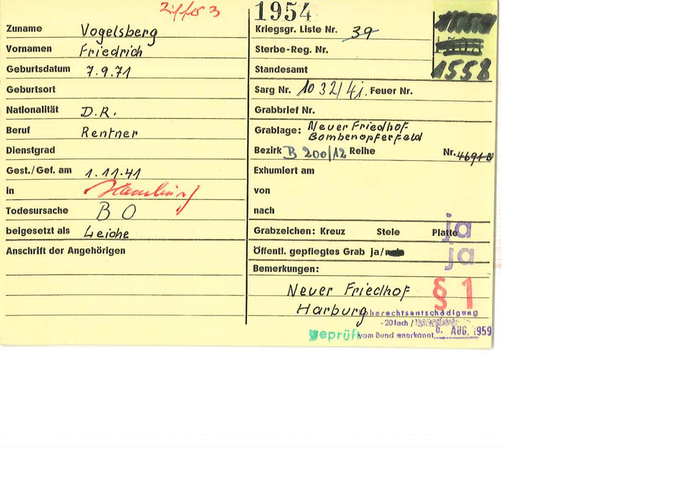 Ziffer 3
1954
Zuname Vogelsberg
Kriegsgr. Liste Nr. 39
Vornamen Friedrich
Sterbe-Reg. Nr.
Geburtsdatum 7.9.71
Standesamt 1558
Geburtsort
Sarg Nr. 1032/41. Feuer Nr.
Nationalität D.R.
Grabbrief Nr.
Beruf Rentner
Grablage: Neuer Friedhof
Bombenopferfeld
Dienstgrad
Bezirk B 200/12 Reihe Nr.
Gest./Gef. am 1.11.41
Exhumiert am
in Hamburg
von
Todesursache B O
nach
beigesetzt als Leiche
Grabzeichen: Kreuz Stele Platte ja
Anschrift der Angehörigen
Öffentl. gepflegtes Grab ja/nein ja
Bemerkungen:
Neuer Friedhof § 1
Harburg
Ruherechtsentschädigung
-20fach /
geprüft vom Bund anerkannt 6. AUG. 1959